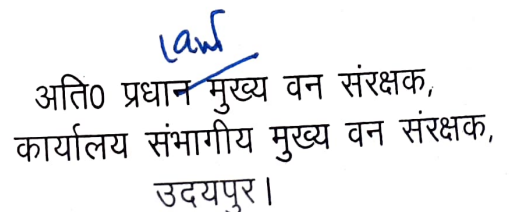 अति0 प्रधान मुख्य वन संरक्षक,
कार्यालय संभागीय मुख्य वन संरक्षक,
उदयपुर।